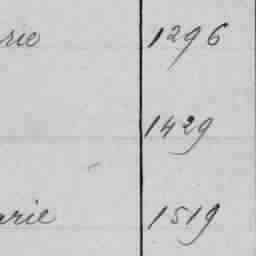 rie 1296
1429
arie 1519